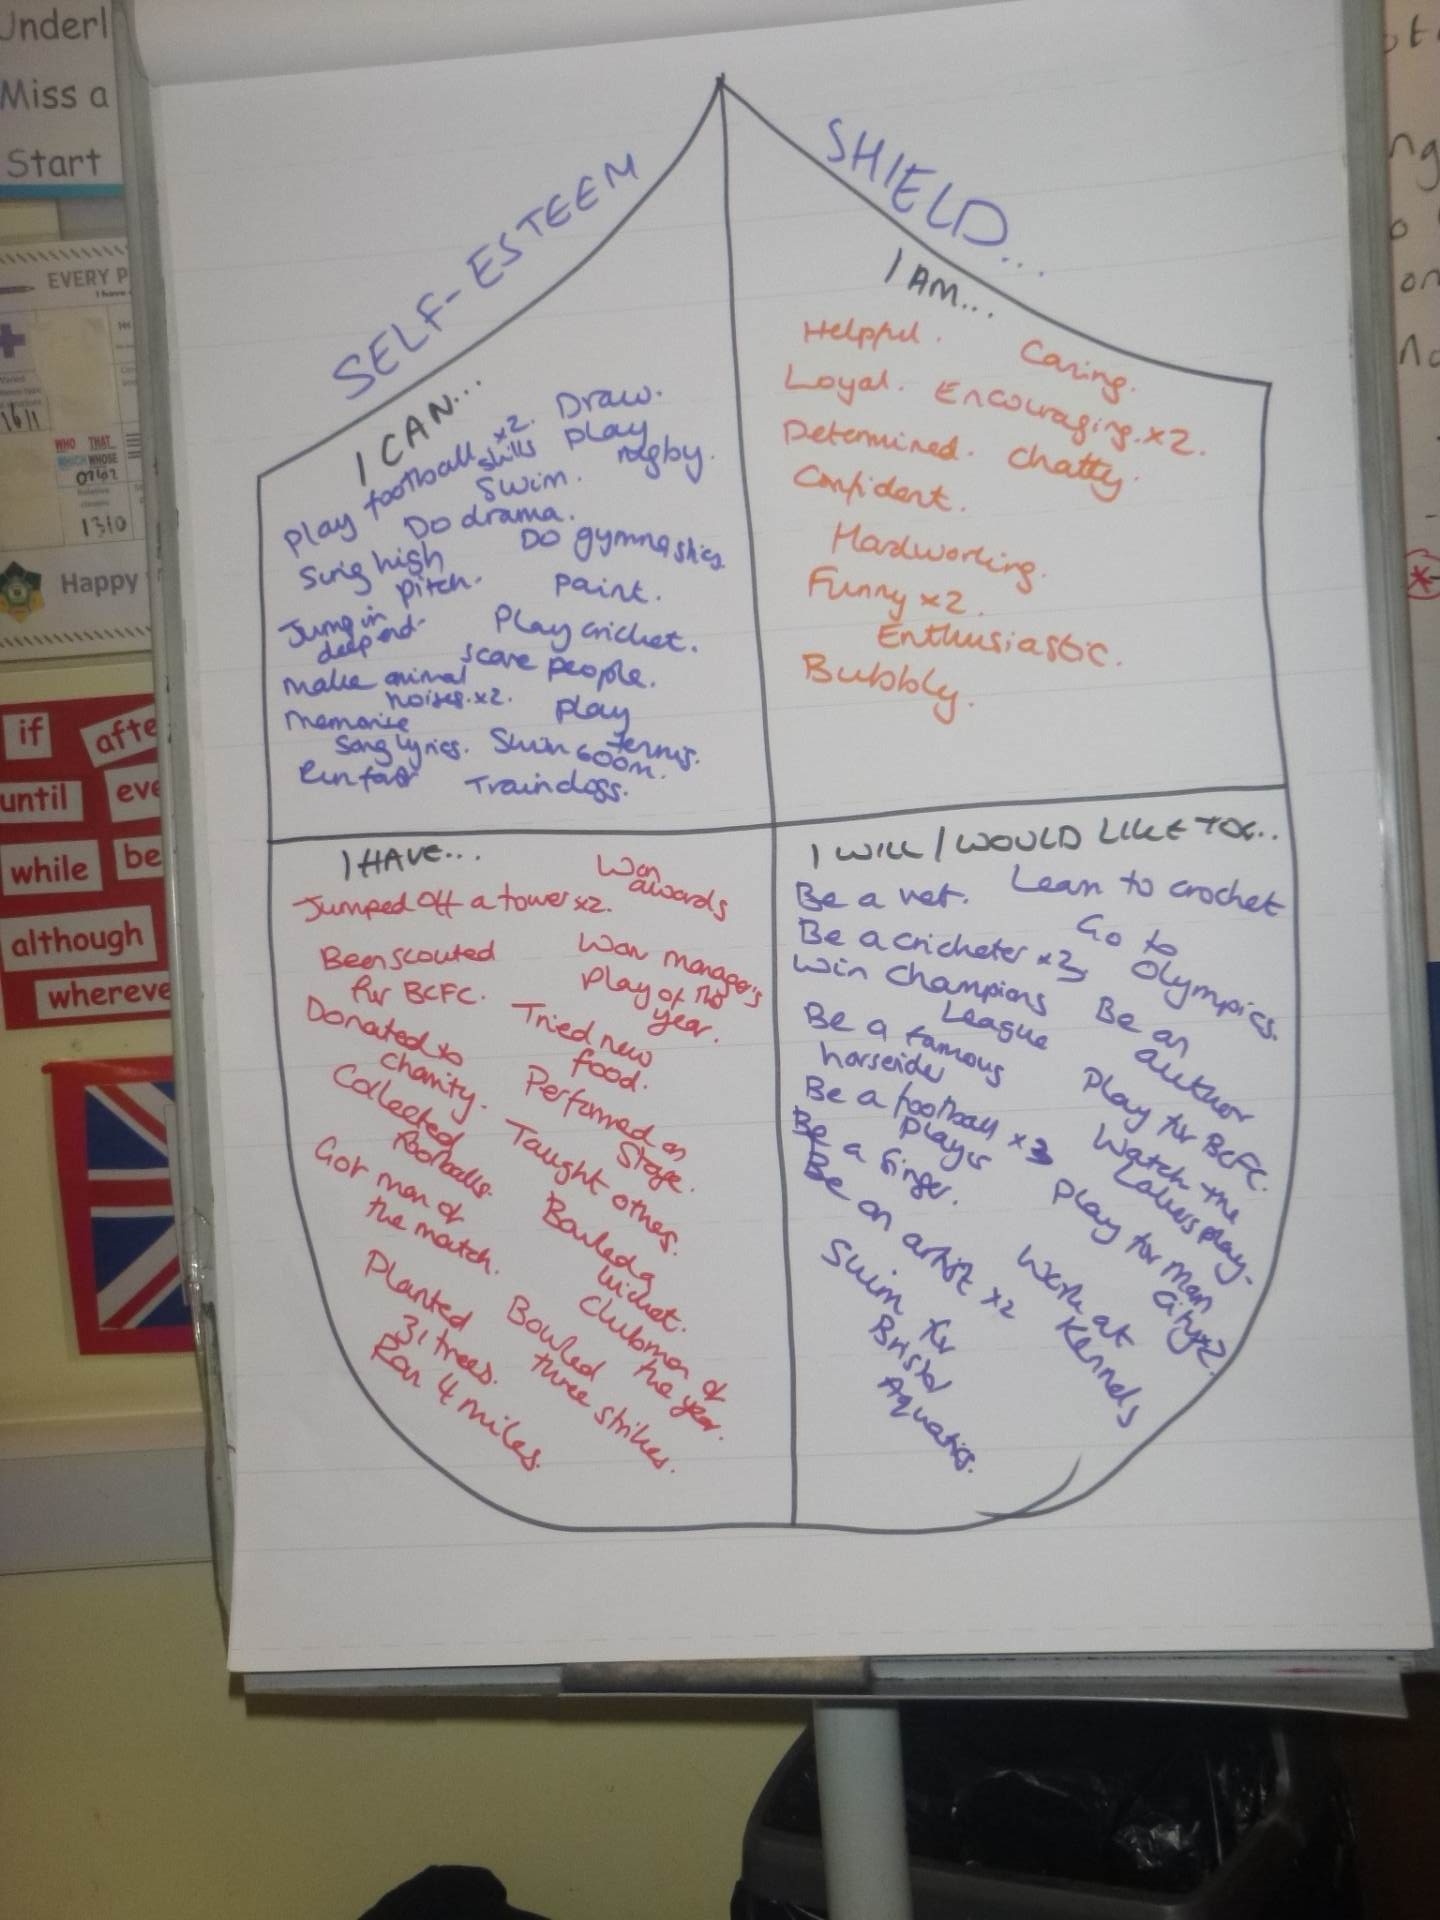 Underl
Miss a
Start
EVERY P
I have
16/1
WHO THAT
WHICH WHOSE
07/02
13/10
Happy
if
afte
until
eve
while
be
although
whereve
SELF-ESTEEM
SHIELD...
I CAN...
Play football skills x2.
Draw.
Play rugby.
Swim.
Do drama.
Sing high
pitch.
Do gymnastics
Paint.
Jump in
deep end.
Play cricket.
Scare people.
Make animal
noises. x2.
Memorise
song lyrics.
Play
tennis.
Swim 600m.
Run fast
Train dogs.
I AM...
Helpful.
Caring.
Loyal.
Encouraging. x2.
Determined.
Chatty.
Confident.
Hardworking.
Funny x2.
Enthusiastic.
Bubbly.
I HAVE...
Won
awards
Jumped off a tower x2.
Been scouted
for BCFC.
Won manager's
play of the
year.
Donated to
charity.
Tried new
food.
Collected
footballs.
Performed on
stage.
Got man of
the match.
Taught others.
Bowled a
wicket.
Planted
31 trees.
Clubman of
the year.
Bowled
three strikes.
Ran 4 miles.
I WILL / WOULD LIKE TO...
Be a vet.
Learn to crochet
Be a cricketer x3.
Go to
Olympics.
Win Champions
League
Be an
author
Be a famous
horserider
Play for BCFC.
Be a football x3
player
Watch the
Lakers play.
Be a singer.
Play for Man
City x2.
Be an artist x2
Work at
Kennels
Swim for
Bristol
Aquatics.